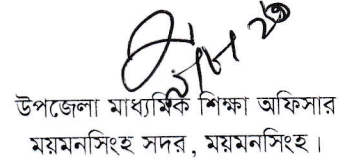 উপজেলা মাধ্যমিক শিক্ষা অফিসার
ময়মনসিংহ সদর, ময়মনসিংহ।